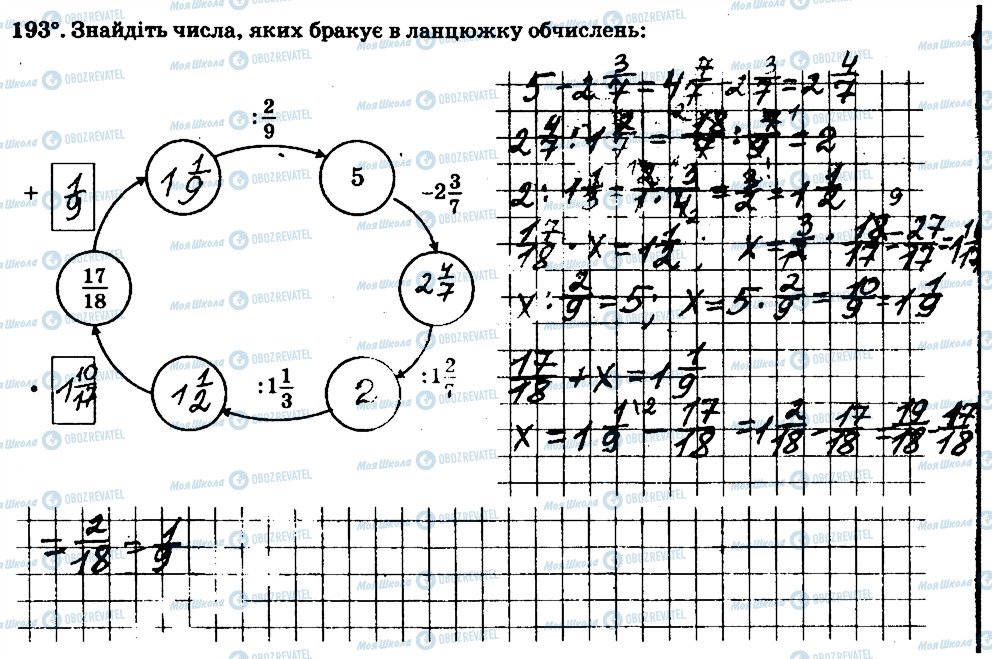 193°. Знайдіть числа, яких бракує в ланцюжку обчислень:
: 2/9
+ 1/9
1 1/9
5
-2 3/7
17/18
2 4/7
· 1 10/17
1 1/2
:1 1/3
2
:1 2/7
5 - 2 3/7 = 4 7/7 - 2 3/7 = 2 4/7
2 4/7 : 1 2/7 = 18/7 : 9/7 = 2
2 : 1 1/3 = 2/1 · 3/4 = 3/2 = 1 1/2
17/18 · x = 1 1/2; x = 3/2 · 18/17 = 27/17 = 1 10/17
x : 2/9 = 5; x = 5 · 2/9 = 10/9 = 1 1/9
17/18 + x = 1 1/9
x = 1 1/9 - 17/18 = 1 2/18 - 17/18 = 19/18 - 17/18
= 2/18 = 1/9
Моя Школа OBOZREVATEL